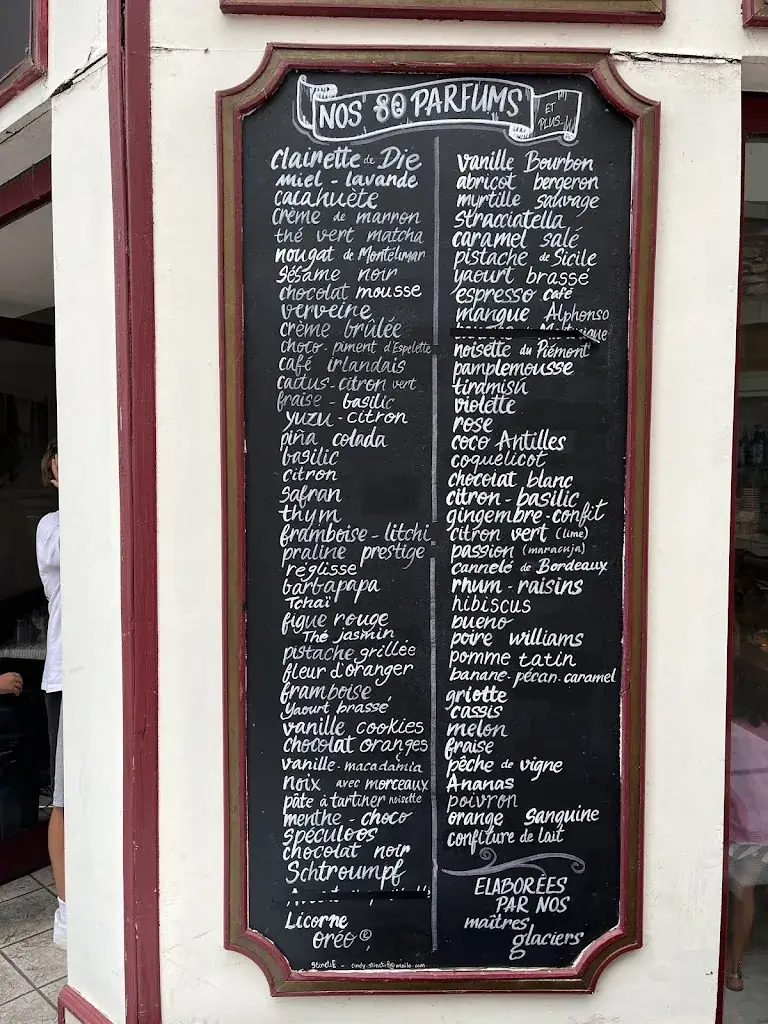 NOS 80 PARFUMS ET PLUS...
clairette de Die
miel - lavande
cacahuète
crème de marron
thé vert matcha
nougat de Montélimar
sésame noir
chocolat mousse
verveine
crème brûlée
choco - piment d'Espelette
café irlandais
cactus - citron vert
fraise - basilic
yuzu - citron
piña colada
basilic
citron
safran
thym
framboise - litchi
praline prestige
réglisse
barbapapa
Tchaï
figue rouge
Thé jasmin
pistache grillée
fleur d'oranger
framboise
Yaourt brassé
vanille cookies
chocolat oranges
vanille - macadamia
noix avec morceaux
pâte à tartiner noisette
menthe - choco
spéculoos
chocolat noir
Schtroumpf
Licorne
oréo ©
vanille Bourbon
abricot bergeron
myrtille sauvage
stracciatella
caramel salé
pistache de Sicile
yaourt brassé
espresso café
mangue Alphonso
noisette du Piémont
pamplemousse
tiramisu
violette
rose
coco Antilles
coquelicot
chocolat blanc
citron - basilic
gingembre - confit
citron vert (lime)
passion (maracuja)
cannelé de Bordeaux
rhum - raisins
hibiscus
bueno
poire williams
pomme tatin
banane - pécan - caramel
griotte
cassis
melon
fraise
pêche de vigne
Ananas
poivron
orange Sanguine
confiture de lait
ELABORÉES
PAR NOS
maîtres
glaciers